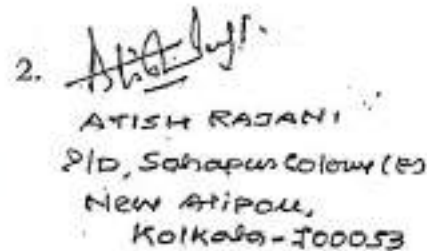 2.
ATISH RAJANI
21D, Sahapur Colony (E)
New Alipore,
Kolkata-700053